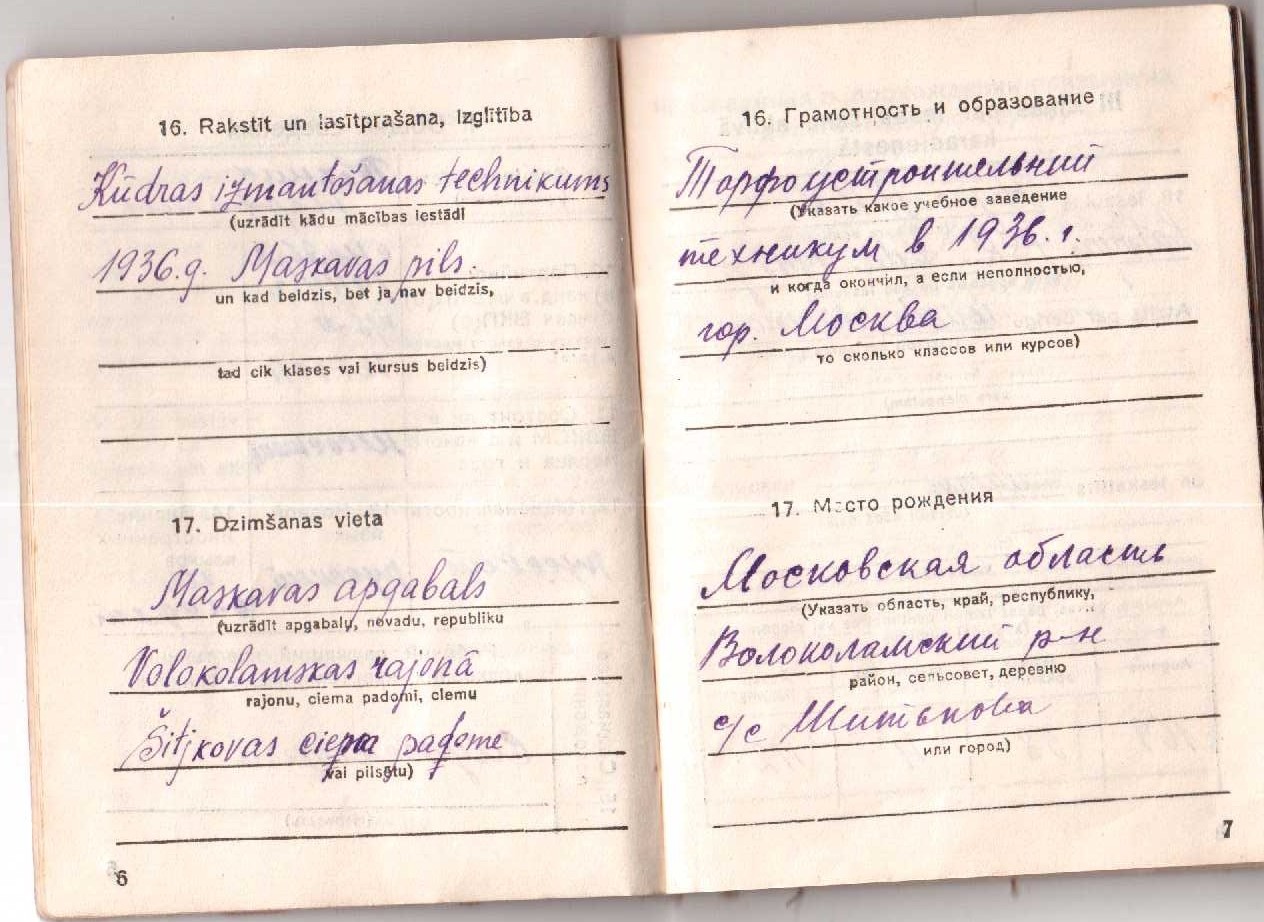 16. Rakstīt un lasītprašana, izglītība
Kūdras izmantošanas technikums
(uzrādīt kādu mācības iestādi
1936.g. Maskavas pils.
un kad beidzis, bet ja nav beidzis,
tad cik klases vai kursus beidzis)
17. Dzimšanas vieta
Maskavas apgabals
(uzrādīt apgabalu, novadu, republiku
Volokolamskas rajonā
rajonu, ciema padomi, ciemu
Šitjkovas ciema padome
vai pilsētu)
6
16. Грамотность и образование
Торфоустроительный
(Указать какое учебное заведение
техникум в 1936. г.
и когда окончил, а если неполностью,
гор. Москва
то сколько классов или курсов)
17. Место рождения
Московская область
(Указать область, край, республику,
Волоколамский р-н
район, сельсовет, деревню
с/с Шитькова
или город)
7